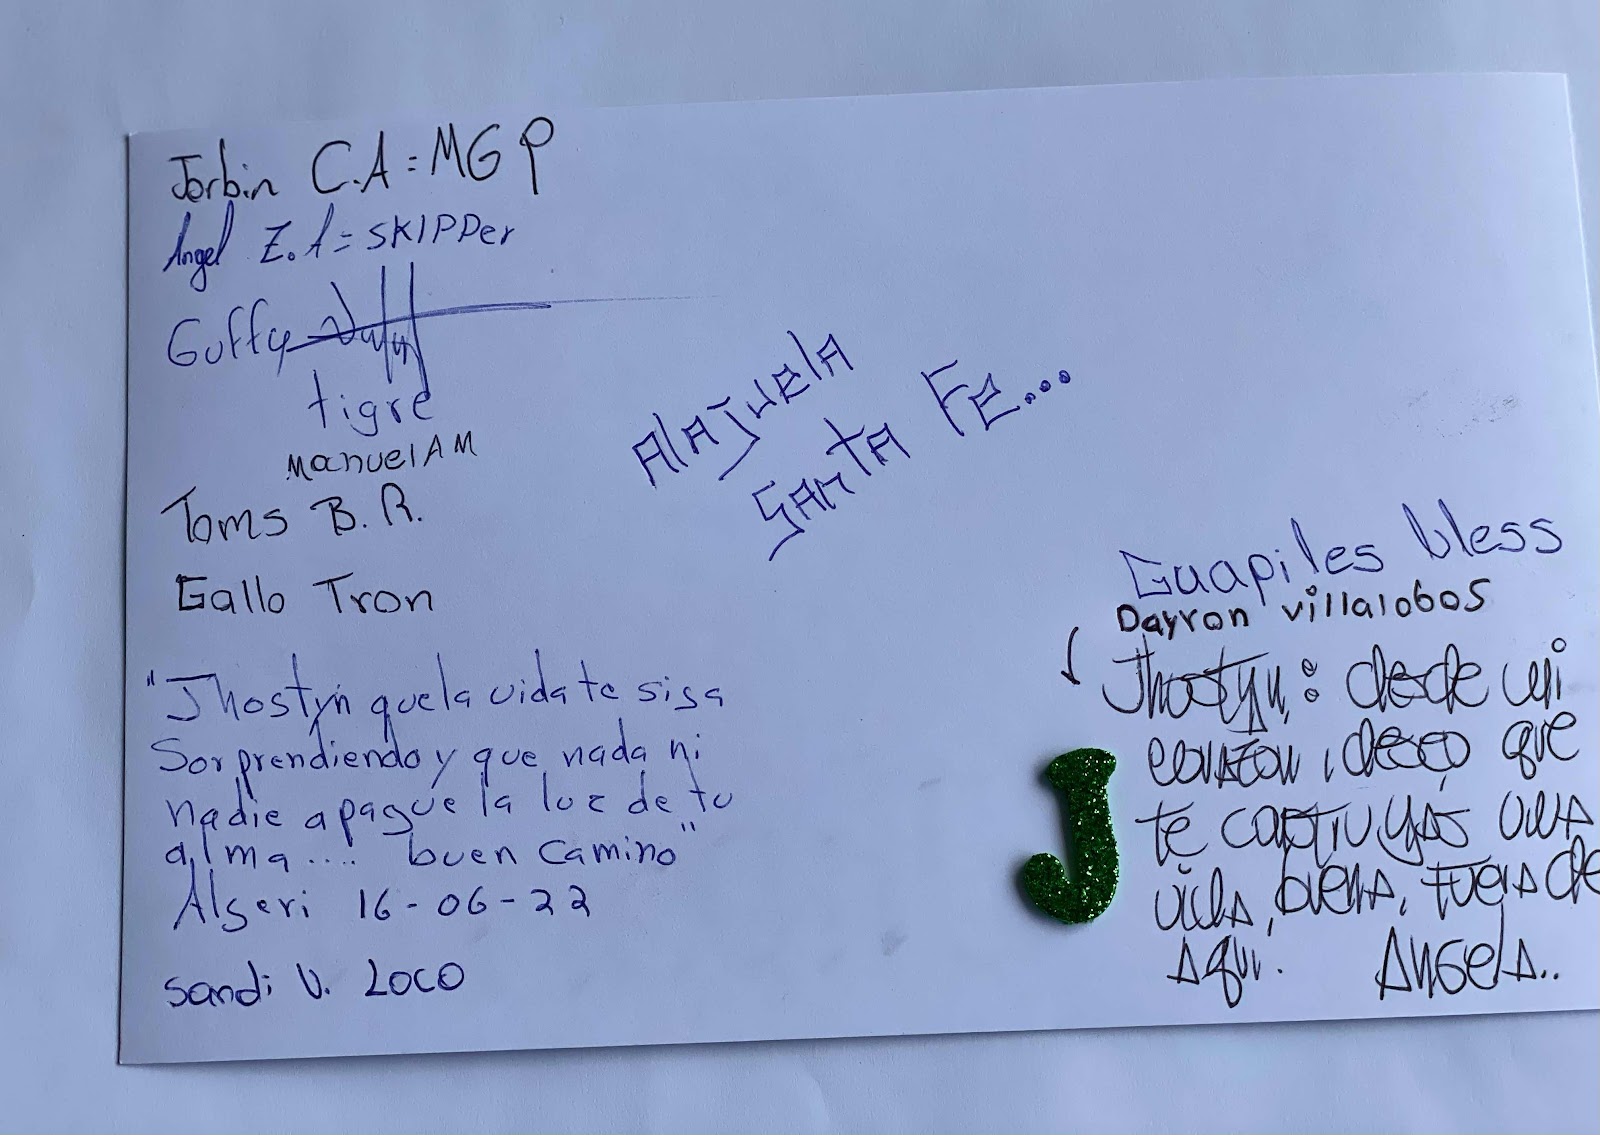 Jorbin C.A=MGP
Angel Z.A=SKIPPer
Guffy
tigre
Manuel AM
Toms B.R.
Gallo Tron
Alajuela
Santa Fe...
Guapiles bless
Dayron villalobos
"Jhostyn que la vida te siga
Sorprendiendo y que nada ni
nadie apague la luz de tu
alma.... buen camino"
Algeri 16-06-22
Sandi V. LOCO
Jhostyn: desde mi
corazon, deseo que
te construyas una
vida, buena, fuera de
aqui. Angela..
J